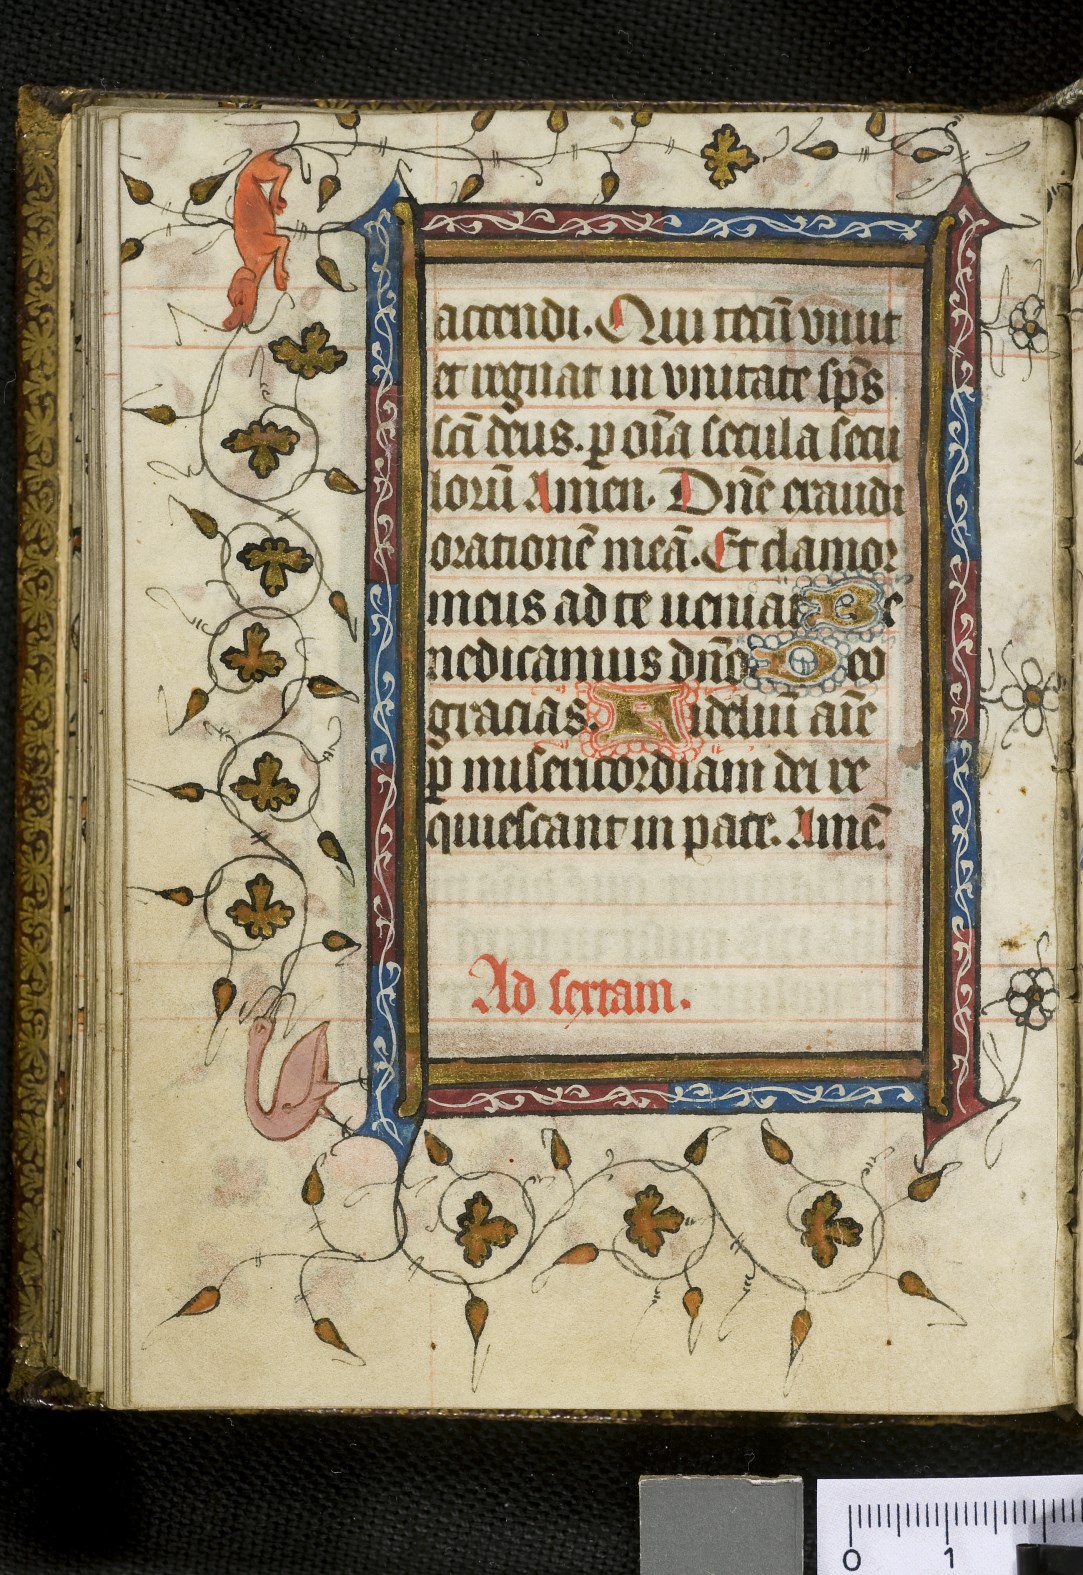 accendi. Qui tecū viuit
et regnat in vnitate sp̄s
sc̄i deus. p oīa secula secu
lorū Amen. Dn̄e exaudi
orationē meā. Et clamor
meus ad te ueniat Be
nedicamus dn̄o Deo
gracias. Fideliū aīe
p misericordiam dei re
quiescant in pace. Amē.
Ad sextam.
0 1